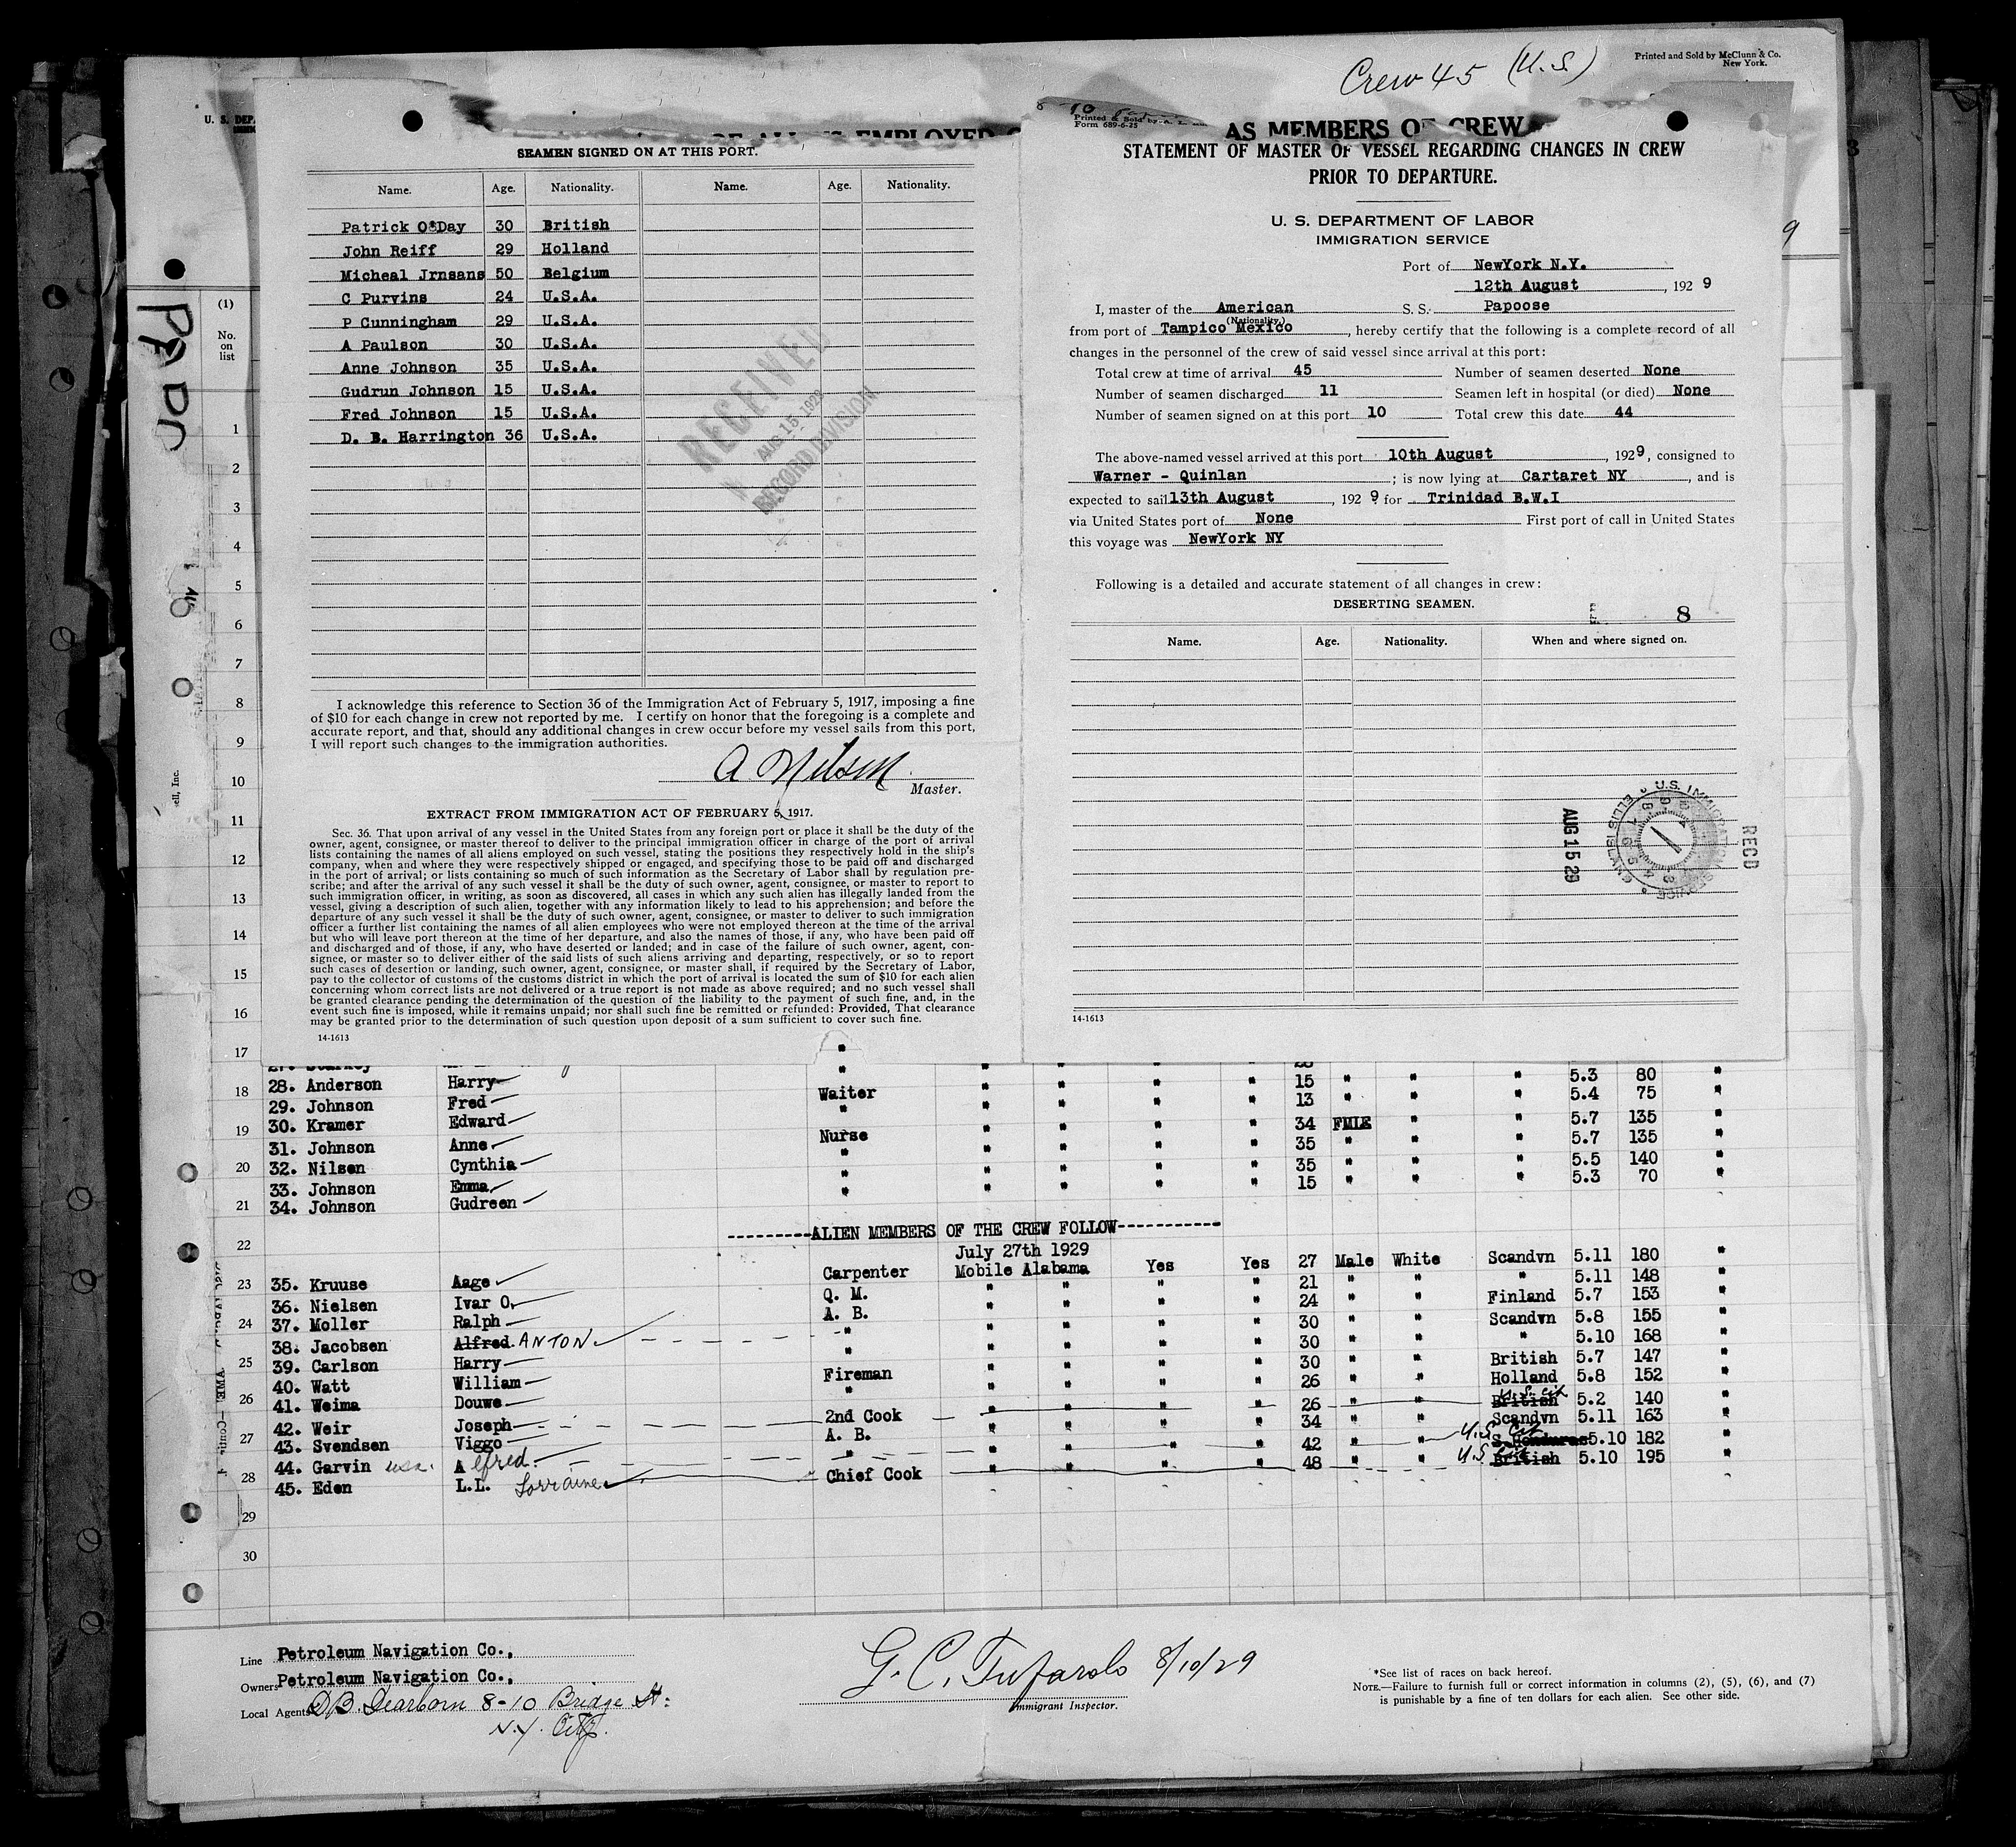 Crew 45 (U.S.)
Printed and Sold by McClunn & Co.
New York.
U. S. DEP
SEAMEN SIGNED ON AT THIS PORT.
Name. Age. Nationality. Name. Age. Nationality.
Patrick O'Day 30 British
John Reiff 29 Holland
Micheal Jrnsans 50 Belgium
C Purvins 24 U.S.A.
P Cunningham 29 U.S.A.
A Paulson 30 U.S.A.
Anne Johnson 35 U.S.A.
Gudrun Johnson 15 U.S.A.
Fred Johnson 15 U.S.A.
D. B. Harrington 36 U.S.A.
RECEIVED
AUG 15 1929
RECORD DIVISION
I acknowledge this reference to Section 36 of the Immigration Act of February 5, 1917, imposing a fine
of $10 for each change in crew not reported by me. I certify on honor that the foregoing is a complete and
accurate report, and that, should any additional changes in crew occur before my vessel sails from this port,
I will report such changes to the immigration authorities.
A Nilsen
Master.
EXTRACT FROM IMMIGRATION ACT OF FEBRUARY 5, 1917.
Sec. 36. That upon arrival of any vessel in the United States from any foreign port or place it shall be the duty of the
owner, agent, consignee, or master thereof to deliver to the principal immigration officer in charge of the port of arrival
lists containing the names of all aliens employed on such vessel, stating the positions they respectively hold in the ship's
company, when and where they were respectively shipped or engaged, and specifying those to be paid off and discharged
in the port of arrival; or lists containing so much of such information as the Secretary of Labor shall by regulation pre-
scribe; and after the arrival of any such vessel it shall be the duty of such owner, agent, consignee, or master to report to
such immigration officer, in writing, as soon as discovered, all cases in which any such alien has illegally landed from the
vessel, giving a description of such alien, together with any information likely to lead to his apprehension; and before the
departure of any such vessel it shall be the duty of such owner, agent, consignee, or master to deliver to such immigration
officer a further list containing the names of all alien employees who were not employed thereon at the time of the arrival
but who will leave port thereon at the time of her departure, and also the names of those, if any, who have been paid off
and discharged and of those, if any, who have deserted or landed; and in case of the failure of such owner, agent, con-
signee, or master so to deliver either of the said lists of such aliens arriving and departing, respectively, or so to report
such cases of desertion or landing, such owner, agent, consignee, or master shall, if required by the Secretary of Labor,
pay to the collector of customs of the customs district in which the port of arrival is located the sum of $10 for each alien
concerning whom correct lists are not delivered or a true report is not made as above required; and no such vessel shall
be granted clearance pending the determination of the question of the liability to the payment of such fine, and, in the
event such fine is imposed, while it remains unpaid; nor shall such fine be remitted or refunded: Provided, That clearance
may be granted prior to the determination of such question upon deposit of a sum sufficient to cover such fine.
14-1613
Form 689-6-25
AS MEMBERS OF CREW
STATEMENT OF MASTER OF VESSEL REGARDING CHANGES IN CREW
PRIOR TO DEPARTURE.
U. S. DEPARTMENT OF LABOR
IMMIGRATION SERVICE
Port of NewYork N.Y.
12th August, 1929
I, master of the American S. S. Papoose
(Nationality.)
from port of Tampico Mexico, hereby certify that the following is a complete record of all
changes in the personnel of the crew of said vessel since arrival at this port:
Total crew at time of arrival 45 Number of seamen deserted None
Number of seamen discharged 11 Seamen left in hospital (or died) None
Number of seamen signed on at this port 10 Total crew this date 44
The above-named vessel arrived at this port 10th August, 1929, consigned to
Warner - Quinlan ; is now lying at Cartaret NY, and is
expected to sail 13th August, 1929 for Trinidad B.W.I
via United States port of None First port of call in United States
this voyage was NewYork NY
Following is a detailed and accurate statement of all changes in crew:
DESERTING SEAMEN.
8
Name. Age. Nationality. When and where signed on.
U.S. IMMIGRATION SERVICE ELLIS ISLAND
RECD
AUG 15 29
14-1613
(1)
No.
on
list
1
2
3
4
5
6
7
8
9
10
11
12
13
14
15
16
17
18
19
20
21
22
23
24
25
26
27
28
29
30
28. Anderson Harry " " " " 15 " " " 5.3 80 "
29. Johnson Fred Waiter " " " " 13 " " " 5.4 75 "
30. Kramer Edward " " " " " 34 FMLE " " 5.7 135 "
31. Johnson Anne Nurse " " " " 35 " " " 5.7 135 "
32. Nilsen Cynthia " " " " " 35 " " " 5.5 140 "
33. Johnson Emma " " " " " 15 " " " 5.3 70 "
34. Johnson Gudreen "
----------ALIEN MEMBERS OF THE CREW FOLLOW-----------
July 27th 1929
35. Kruuse Aage Carpenter Mobile Alabama Yes Yes 27 Male White Scandvn 5.11 180 "
36. Nielsen Ivar O. Q. M. " " " " 21 " " " 5.11 148 "
37. Moller Ralph A. B. " " " " 24 " " Finland 5.7 153 "
38. Jacobsen Alfred. ANTON " " " " " 30 " " Scandvn 5.8 155 "
39. Carlson Harry " " " " " 30 " " " 5.10 168 "
40. Watt William Fireman " " " " 30 " " British 5.7 147 "
41. Weima Douwe " " " " " 26 " " Holland 5.8 152 "
42. Weir Joseph 2nd Cook " " " " 26 " " British U.S. Cit 5.2 140 "
43. Svendsen Viggo A. B. " " " " 34 " " Scandvn 5.11 163 "
44. Garvin usa. Alfred. " " " " " 42 " " U.S. Cit S. Honduras 5.10 182 "
45. Eden L.L. Lorraine Chief Cook " " " " 48 " " U.S. Cit British 5.10 195 "
Line Petroleum Navigation Co.,
Owners Petroleum Navigation Co.,
Local Agents D.B. Dearborn 8-10 Bridge St:
N.Y. City.
G. C. Tufarolo 8/10/29
Immigrant Inspector.
*See list of races on back hereof.
NOTE.—Failure to furnish full or correct information in columns (2), (5), (6), and (7)
is punishable by a fine of ten dollars for each alien. See other side.